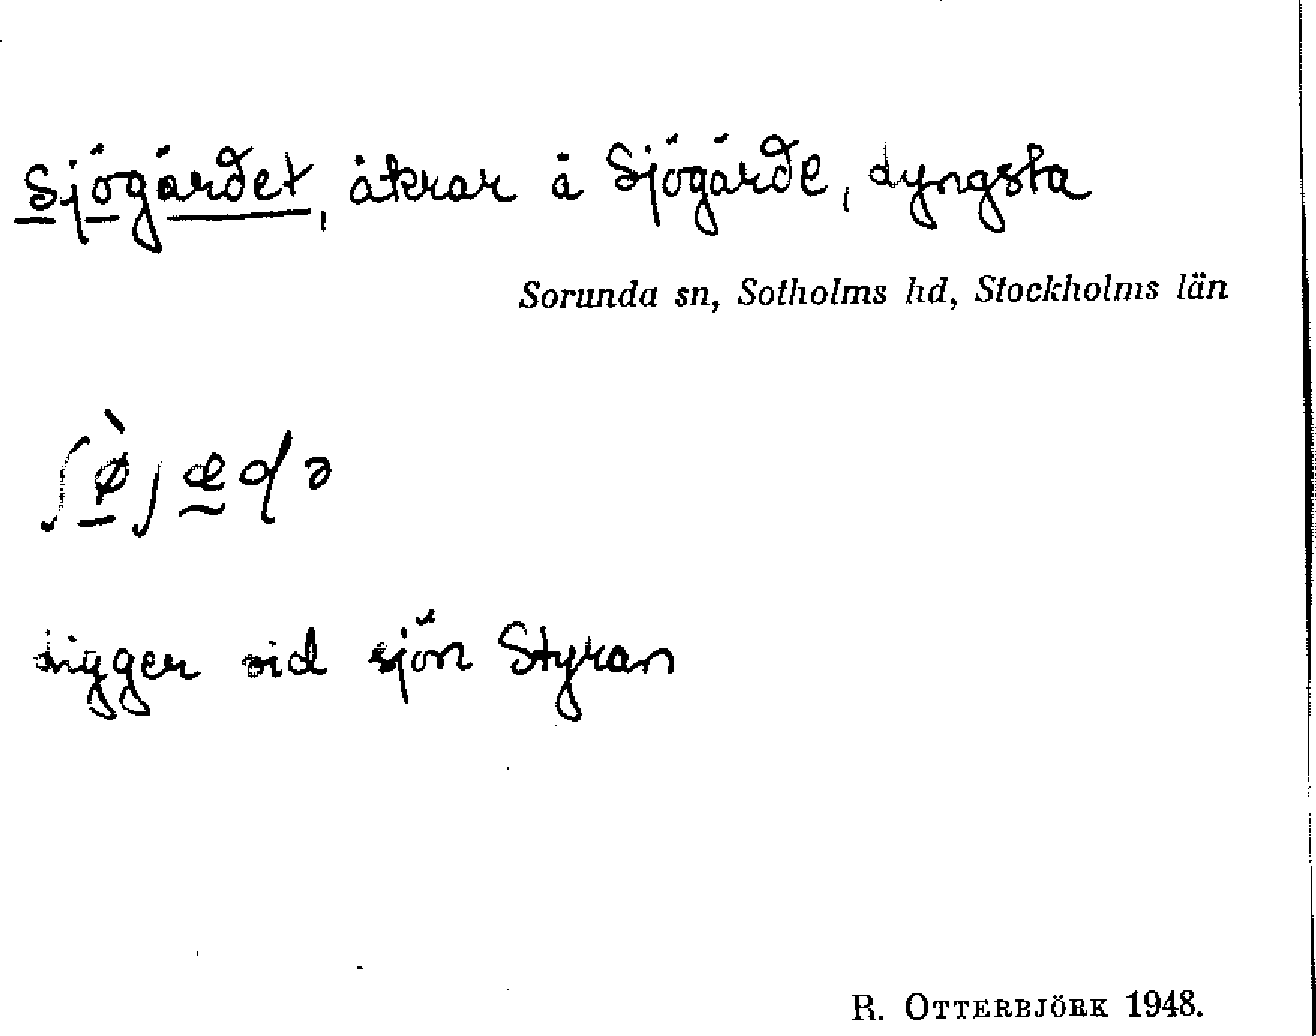 Sjögärdet, åkrar å Sjögärde, Lyngsta
Sorunda sn, Sotholms hd, Stockholms län
ʃø̠̀jæ̰ɖə
ligger vid sjön Styran
R. OTTERBJÖRK 1948.